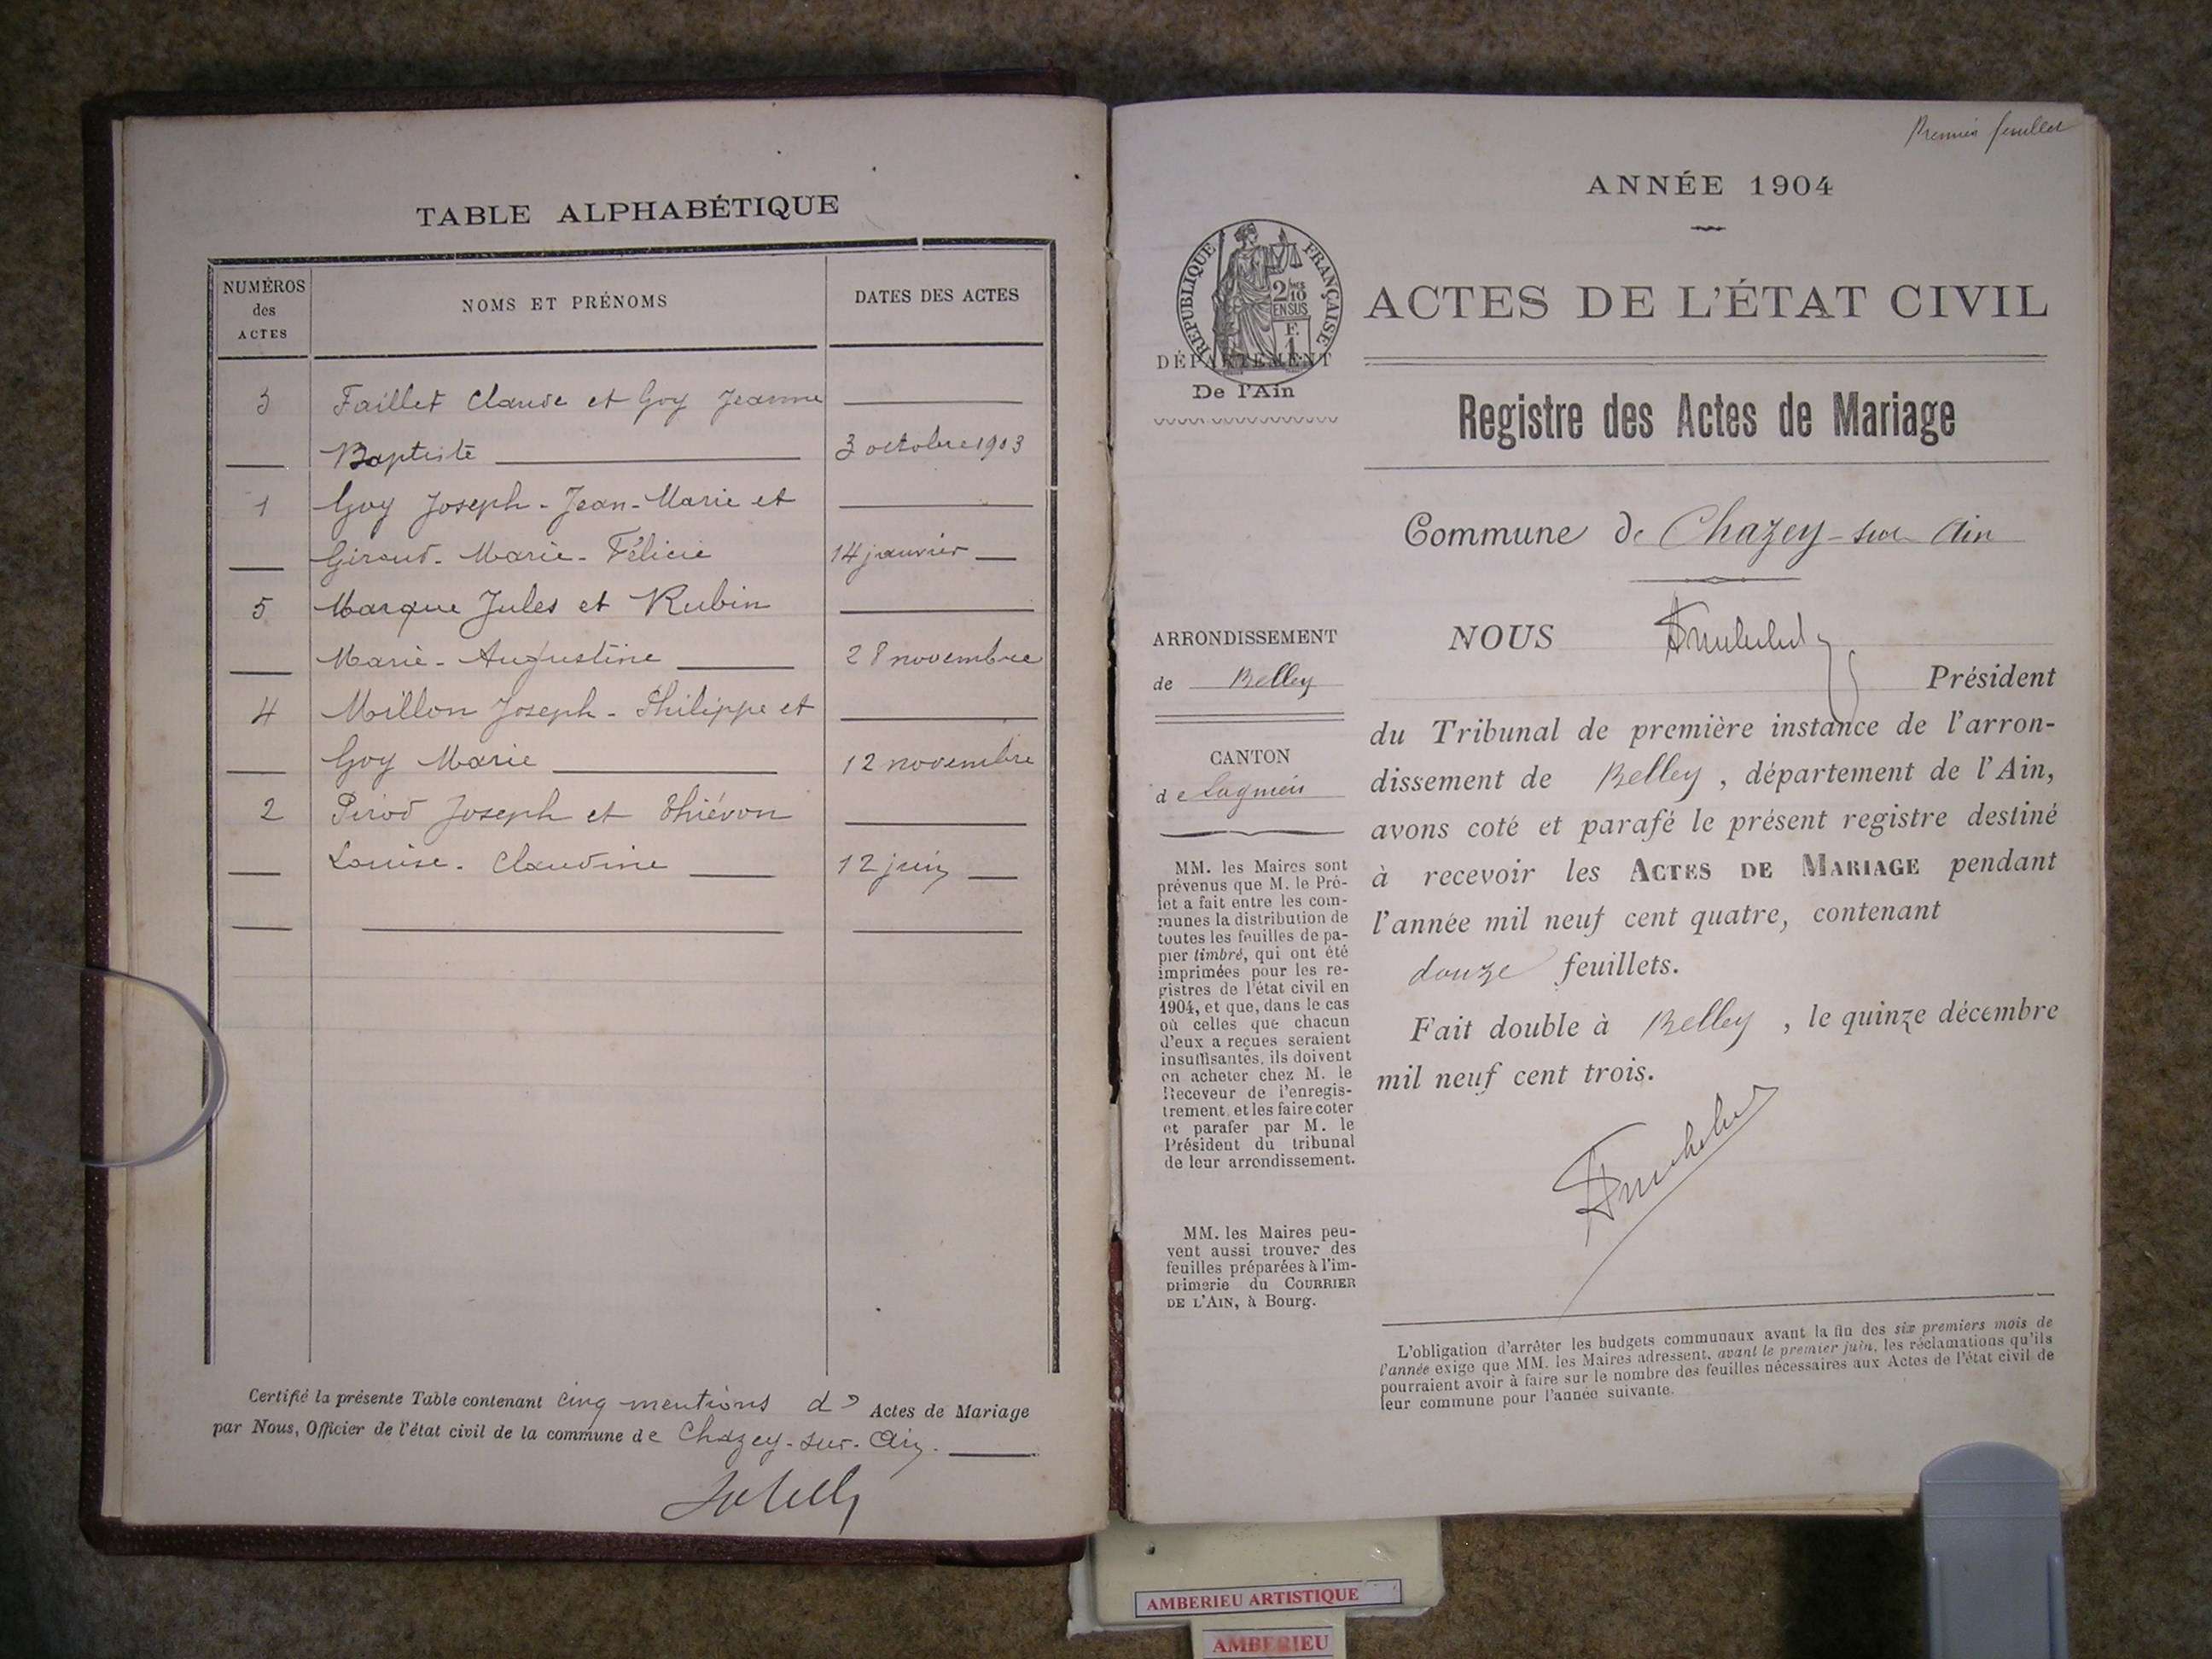 TABLE ALPHABÉTIQUE
NUMÉROS
des
ACTES
NOMS ET PRÉNOMS
DATES DES ACTES
3 Faillet Claude et Goy Jeanne
Baptiste 3 octobre 1903
1 Goy Joseph-Jean-Marie et
Giroud-Marie-Félicie 14 janvier
5 Marque Jules et Rubin
Marie-Augustine 28 novembre
4 Millon Joseph-Philippe et
Goy Marie 12 novembre
2 Pirod Joseph et Thiévon
Louise-Claudine 12 juin
Certifié la présente Table contenant cinq mentions d' Actes de Mariage
par Nous, Officier de l'état civil de la commune de Chazey-sur-Ain.
Premier feuillet
ANNÉE 1904
RÉPUBLIQUE FRANÇAISE
2/10
EN SUS
F.
1
ACTES DE L'ÉTAT CIVIL
DÉPARTEMENT
De l'Ain
Registre des Actes de Mariage
Commune de Chazey-sur-Ain
ARRONDISSEMENT
de Belley
CANTON
de Lagnieu
MM. les Maires sont
prévenus que M. le Pré-
fet a fait entre les com-
munes la distribution de
toutes les feuilles de pa-
pier timbré, qui ont été
imprimées pour les re-
gistres de l'état civil en
1904, et que, dans le cas
où celles que chacun
d'eux a reçues seraient
insuffisantes, ils doivent
en acheter chez M. le
Receveur de l'enregis-
trement, et les faire coter
et parafer par M. le
Président du tribunal
de leur arrondissement.
MM. les Maires peu-
vent aussi trouver des
feuilles préparées à l'im-
primerie du COURRIER
DE L'AIN, à Bourg.
NOUS
Président
du Tribunal de première instance de l'arron-
dissement de Belley, département de l'Ain,
avons coté et parafé le présent registre destiné
à recevoir les ACTES DE MARIAGE pendant
l'année mil neuf cent quatre, contenant
douze feuillets.
Fait double à Belley, le quinze décembre
mil neuf cent trois.
L'obligation d'arrêter les budgets communaux avant la fin des six premiers mois de
l'année exige que MM. les Maires adressent, avant le premier juin, les réclamations qu'ils
pourraient avoir à faire sur le nombre des feuilles nécessaires aux Actes de l'état civil de
leur commune pour l'année suivante.
AMBERIEU ARTISTIQUE
AMBERIEU